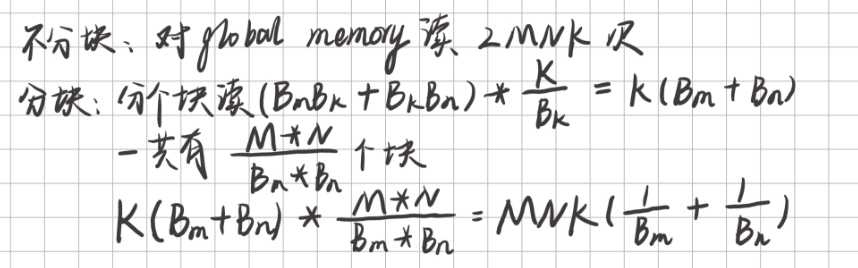 不分块：对global memory读 2MNK 次
分块：分个块读(BmBk + BkBn) * K/Bk = K(Bm + Bn)
一共有 M*N/Bm*Bn 个块
K(Bm+Bn) * M*N/Bm*Bn = MNK(1/Bm + 1/Bn)